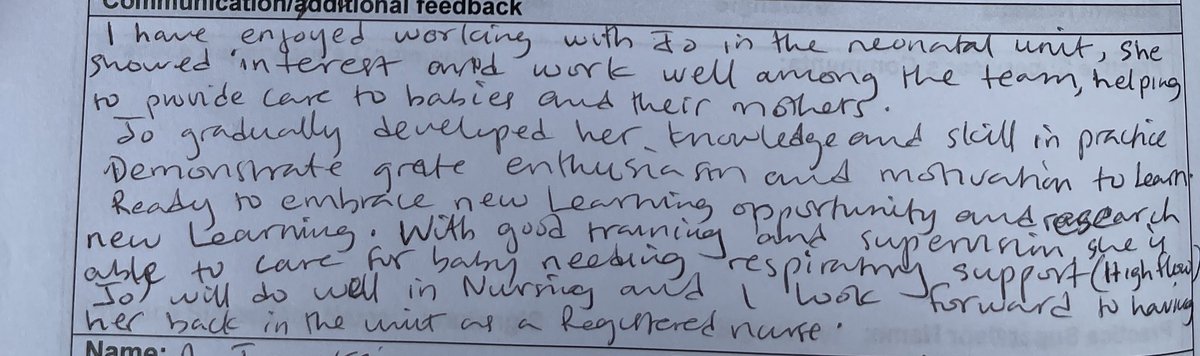 Communication/additional feedback
I have enjoyed working with Jo in the neonatal unit, she
showed interest and work well among the team, helping
to provide care to babies and their mothers.
Jo gradually developed her knowledge and skill in practice
Demonstrate grate enthusiasm and motivation to learn.
Ready to embrace new Learning opportunity and research
new Learning. With good training and supervision she is
able to care for baby needing respiratory support (High flow)
Jo will do well in Nursing and I look forward to having
her back in the unit as a Registered nurse.
Name: